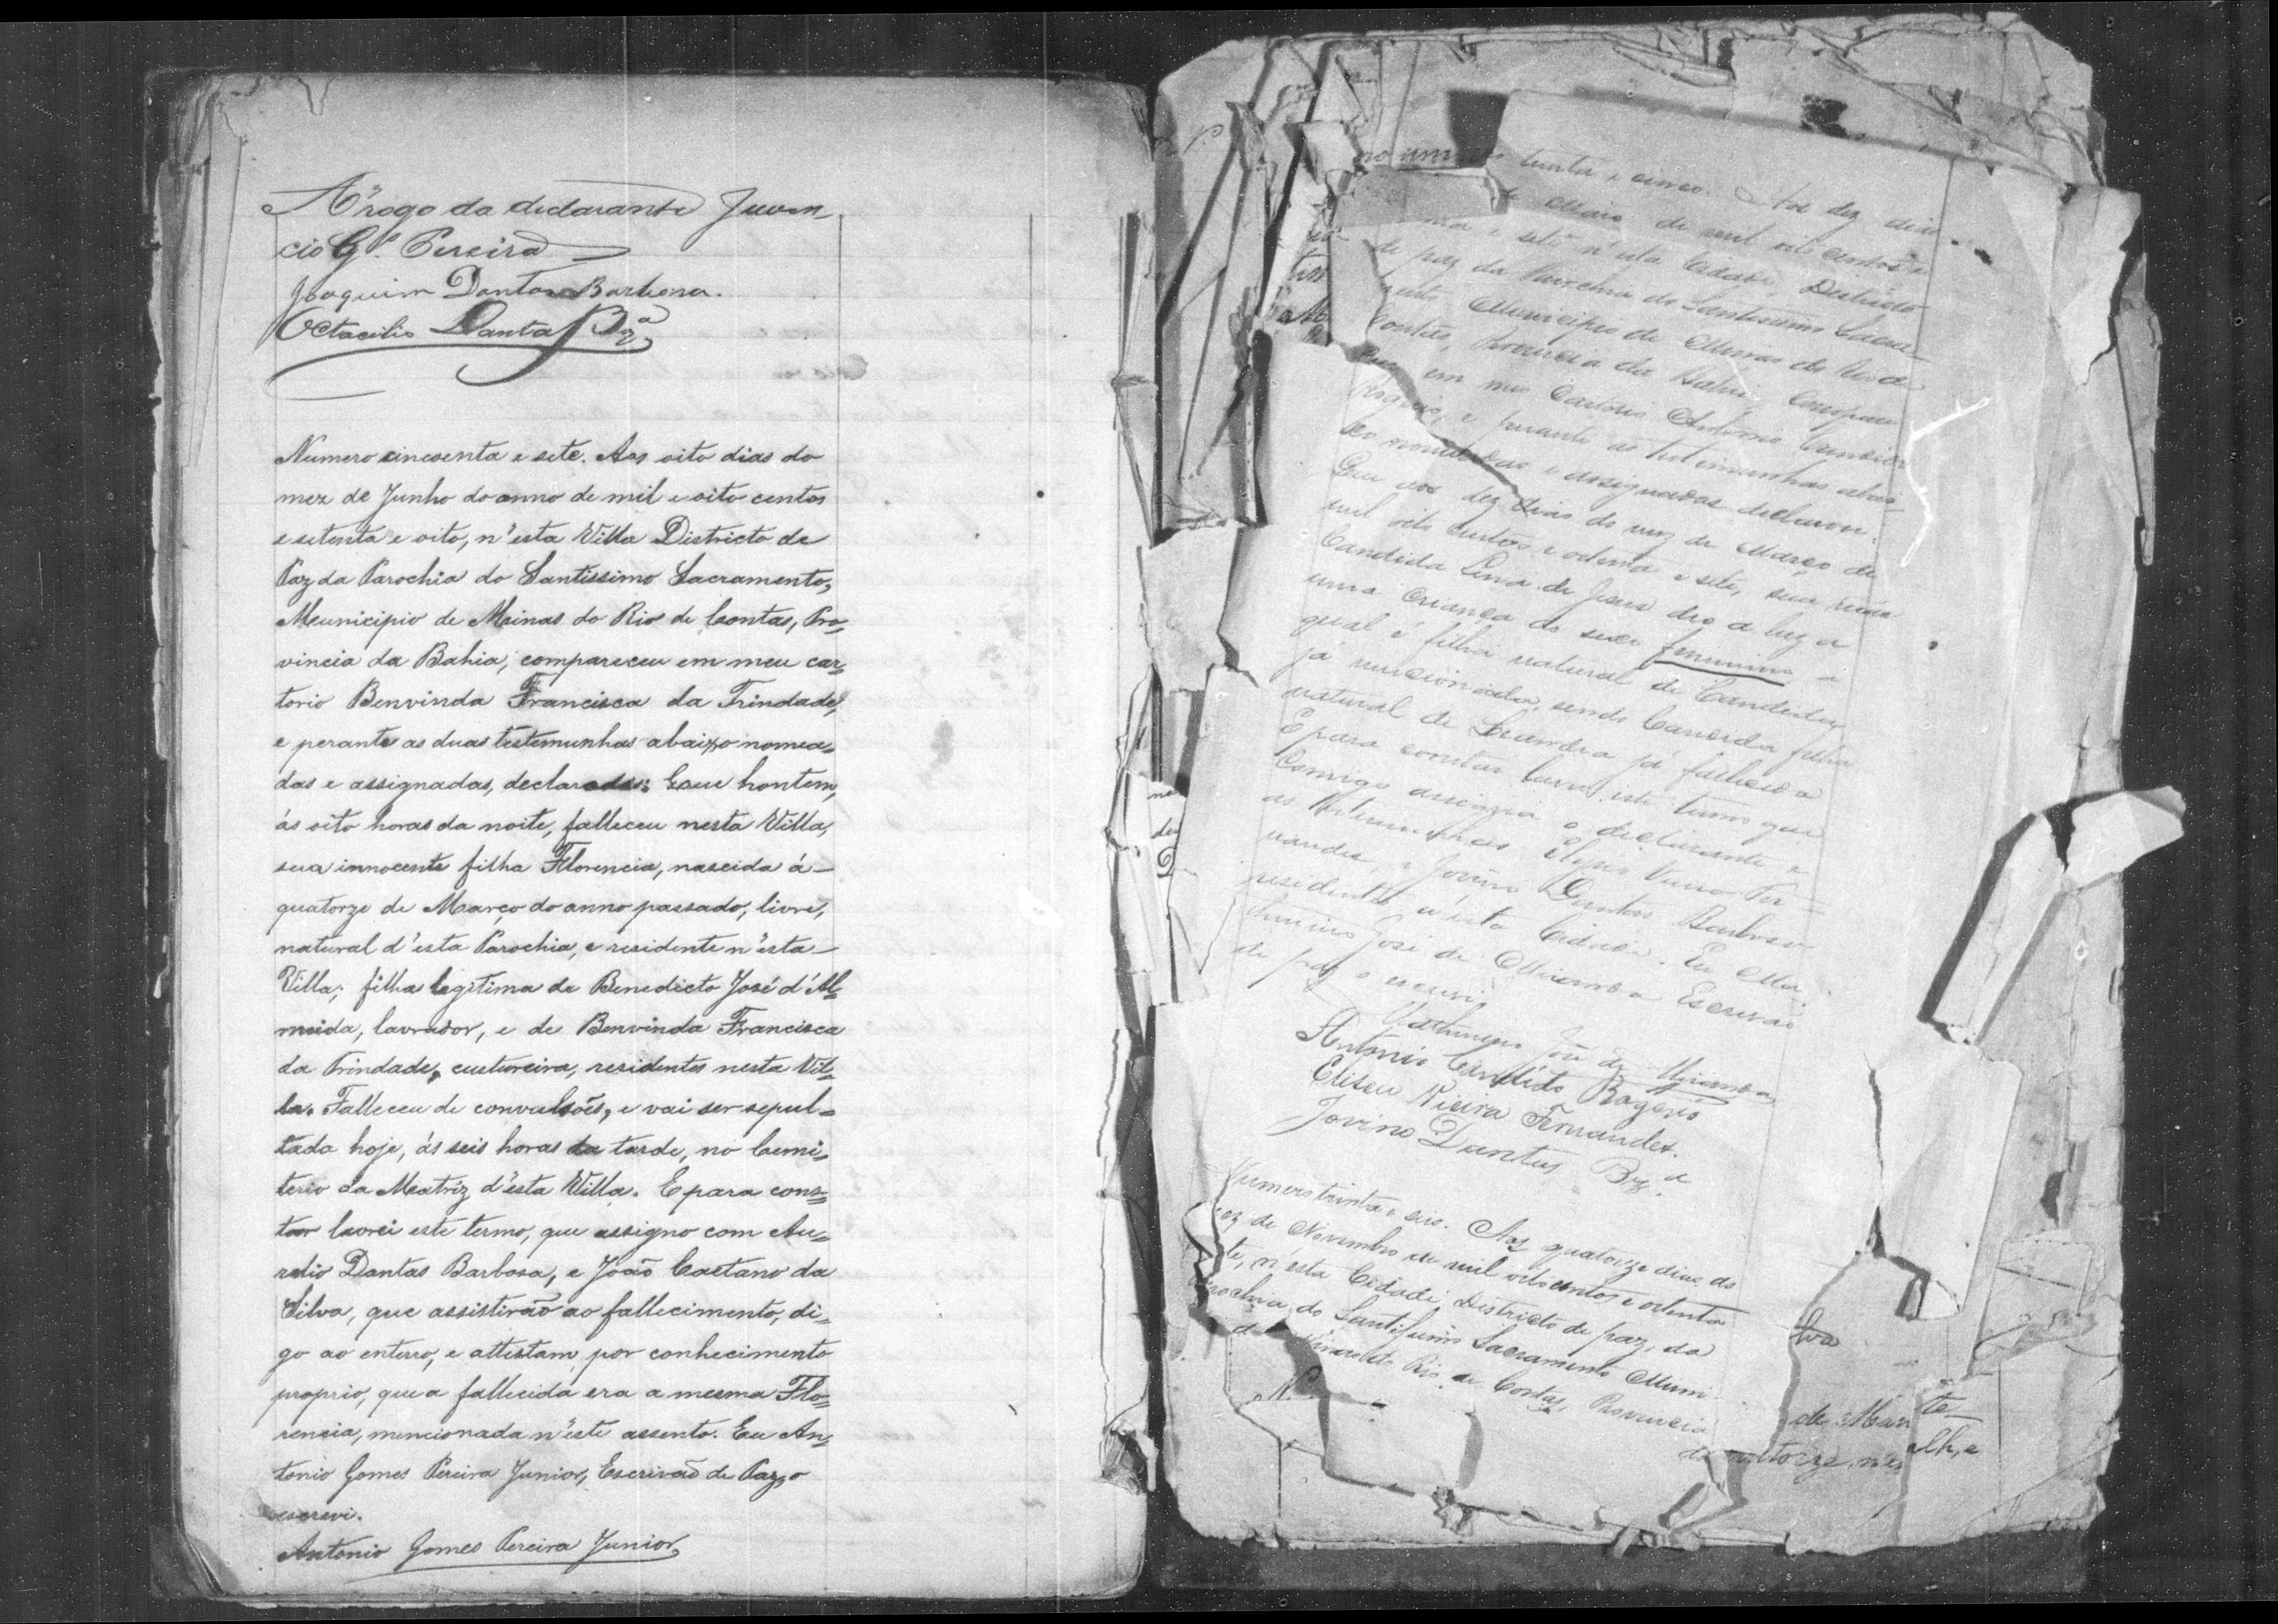 A rogo da declarante Juven
cio Gs. Pereira
Joaquim Dantas Barbosa.
Octacilio Dantas Bza
Numero cincoenta e sete. Aos oito dias do
mez de Junho do anno de mil e oito centos
e setenta e oito, n'esta Villa Districto de
Paz da Parochia do Santissimo Sacramento,
Municipio de Minas do Rio de Contas, Pro=
vincia da Bahia, compareceu em meu car=
torio Benvinda Francisca da Trindade,
e perante as duas testemunhas abaixo nomea=
das e assignadas, declarou: Que hontem,
ás oito horas da noite, falleceu nesta Villa,
sua innocente filha Florencia, nascida á
quatorze de Março do anno passado, livre,
natural d'esta Parochia, e residente n'esta
Villa; filha legitima de Benedicto José d'Al=
meida, lavrador, e de Benvinda Francisca
da Trindade, custureira, residentes nesta Vil=
la. Falleceu de convulsões, e vai ser sepul=
tada hoje, ás seis horas da tarde, no Cemi=
terio da Matriz d'esta Villa. E para cons=
tar lavrei este termo, que assigno com Au=
relio Dantas Barbosa, e João Caetano da
Silva, que assistirão ao fallecimento, di=
go ao enterro, e attestam, por conhecimento
proprio, que a fallecida era a mesma Flo=
rencia, mencionada n'este assento. Eu An=
tonio Gomes Pereira Junior, Escrivão de Paz, o
escrevi.
Antonio Gomes Pereira Junior
trinta e cinco. Aos dez dias
de Maio de mil oito centos e
e sete n'esta Cidade, Districto
de paz da Parochia do Santissimo Sacra
mento Municipio de Minas do Rio de
Contas, Provincia da Bahia Compare
ceu em meu Cartorio Antonio Candido
Rogerio, e perante as testimunhas abai
xo nomeadas e assignadas declarou.
Que aos dez dias do mez de Março de
mil oito centos e oitenta e sete, sua
Candida Lina de Jesus deo a luz a
uma Criança do sexo feminino a
qual é filha natural de Candida
já mencionada, sendo Candida filha
natural de Leandra já fallecida
E para constar lavrei este termo que
Comigo assigna o declarante e
as testimunhas Eliseu Vieira Fer
nandes, e Jovino Dantas Barbosa
residentes n'esta Cidade. Eu
José de Miranda Escrivão
de paz o escrevi
José de Miranda
Antonio Candido Rogerio
Eliseu Vieira Fernandes.
Jovino Dantas Bza
Numero trinta e seis. Aos quatorze dias do
mez de Novembro de mil oitocentos e oitenta
e sete, n'esta Cidade Districto de paz, da
Parochia do Santissimo Sacramento Muni
Minas do Rio de Contas, Provincia